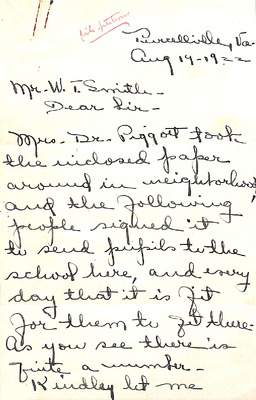 file petition
Purcellville, Va.
Aug 19-1922
Mr. W. T. Smith -
Dear Sir -
Mrs. Dr. Piggott took
the inclosed paper
around in neighborhood
and the following
people signed it
to send pupils to the
school here, and every
day that it is fit
for them to get there.
As you see there is
quite a number -
Kindley let me